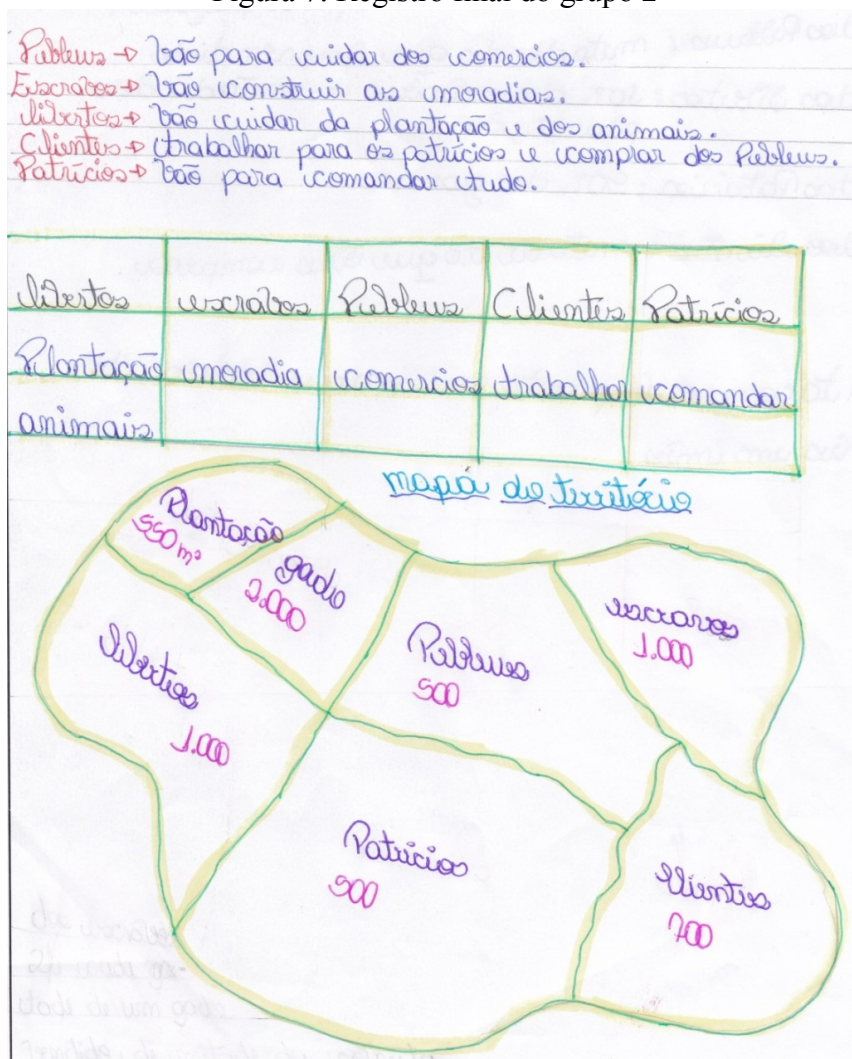 Figura 7: Registro final do grupo 2
Plebleus → Vão para cuidar dos comercios.
Escravos → Vão construir as moradias.
libertos → Vão cuidar da plantação e dos animais.
Clientes → trabalhar para os patrícios e comprar dos Plebleus.
Patrícios → Vão para comandar tudo.
libertos escravos Plebleus Clientes Patrícios
Plantação moradia comercios trabalhar comandar
animais
mapa do território
Plantação
550 m²
gado
2.000
escravos
1.000
Plebleus
500
libertos
1.000
Patrícios
500
Clientes
700